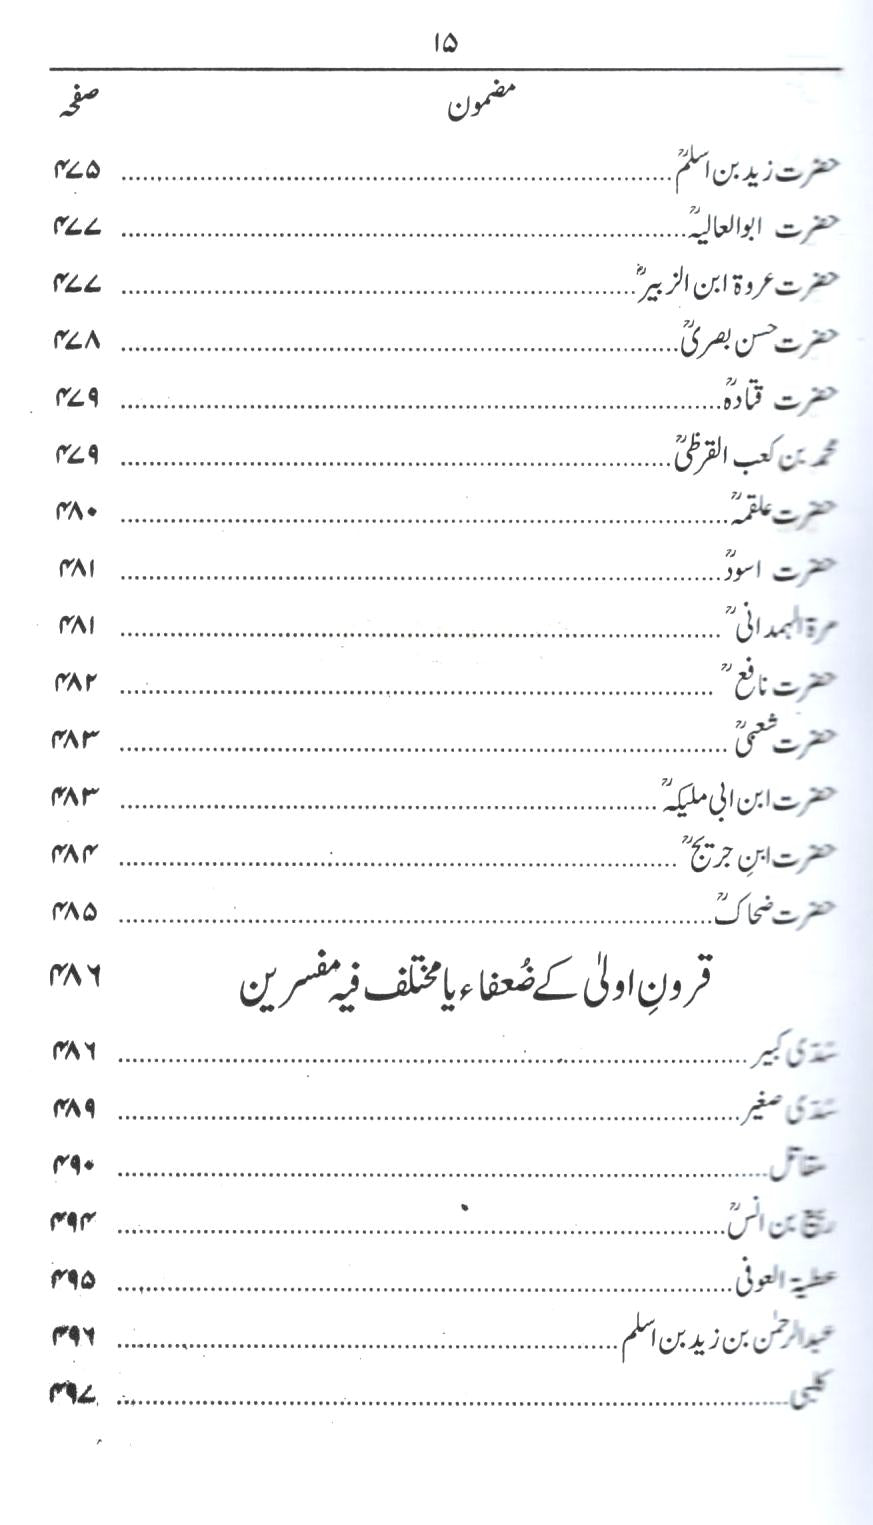 ۱۵
مضمون صفحہ
حضرت زید بن اسلمؒ ۴۷۵
حضرت ابوالعالیہؒ ۴۷۷
حضرت عروۃ ابن الزبیرؒ ۴۷۷
حضرت حسن بصریؒ ۴۷۸
حضرت قتادہؒ ۴۷۹
محمد بن کعب القرظیؒ ۴۷۹
حضرت علقمہؒ ۴۸۰
حضرت اسودؒ ۴۸۱
مرۃ الہمدانیؒ ۴۸۱
حضرت نافعؒ ۴۸۲
حضرت شعبیؒ ۴۸۳
حضرت ابن ابی ملیکہؒ ۴۸۳
حضرت ابنِ جریجؒ ۴۸۴
حضرت ضحاکؒ ۴۸۵
قرونِ اولیٰ کے ضُعفاء یا مختلف فیہ مفسرین ۴۸۶
سُدّی کبیر ۴۸۶
سُدّی صغیر ۴۸۹
مقاتل ۴۹۰
ربیع بن انسؒ ۴۹۴
عطیۃ العوفی ۴۹۵
عبدالرحمٰن بن زید بن اسلم ۴۹۶
کلبی ۴۹۷